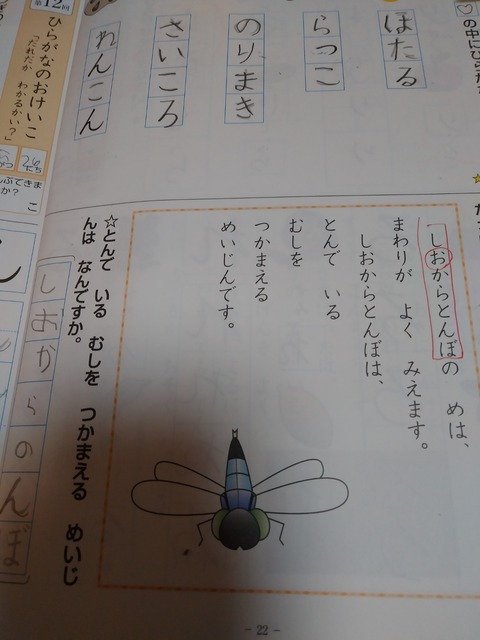 の中にひらがな
ほたる
らっこ
のりまき
さいころ
れんこん
しおからとんぼの めは、
まわりが よく みえます。
しおからとんぼは、
とんで いる
むしを
つかまえる
めいじんです。
☆とんで いる むしを つかまえる めいじ
んは なんですか。
しおからのんぼ
第12回
ひらがなのおけいこ
「だれだか わかるかい？」
26
にち
- 22 -